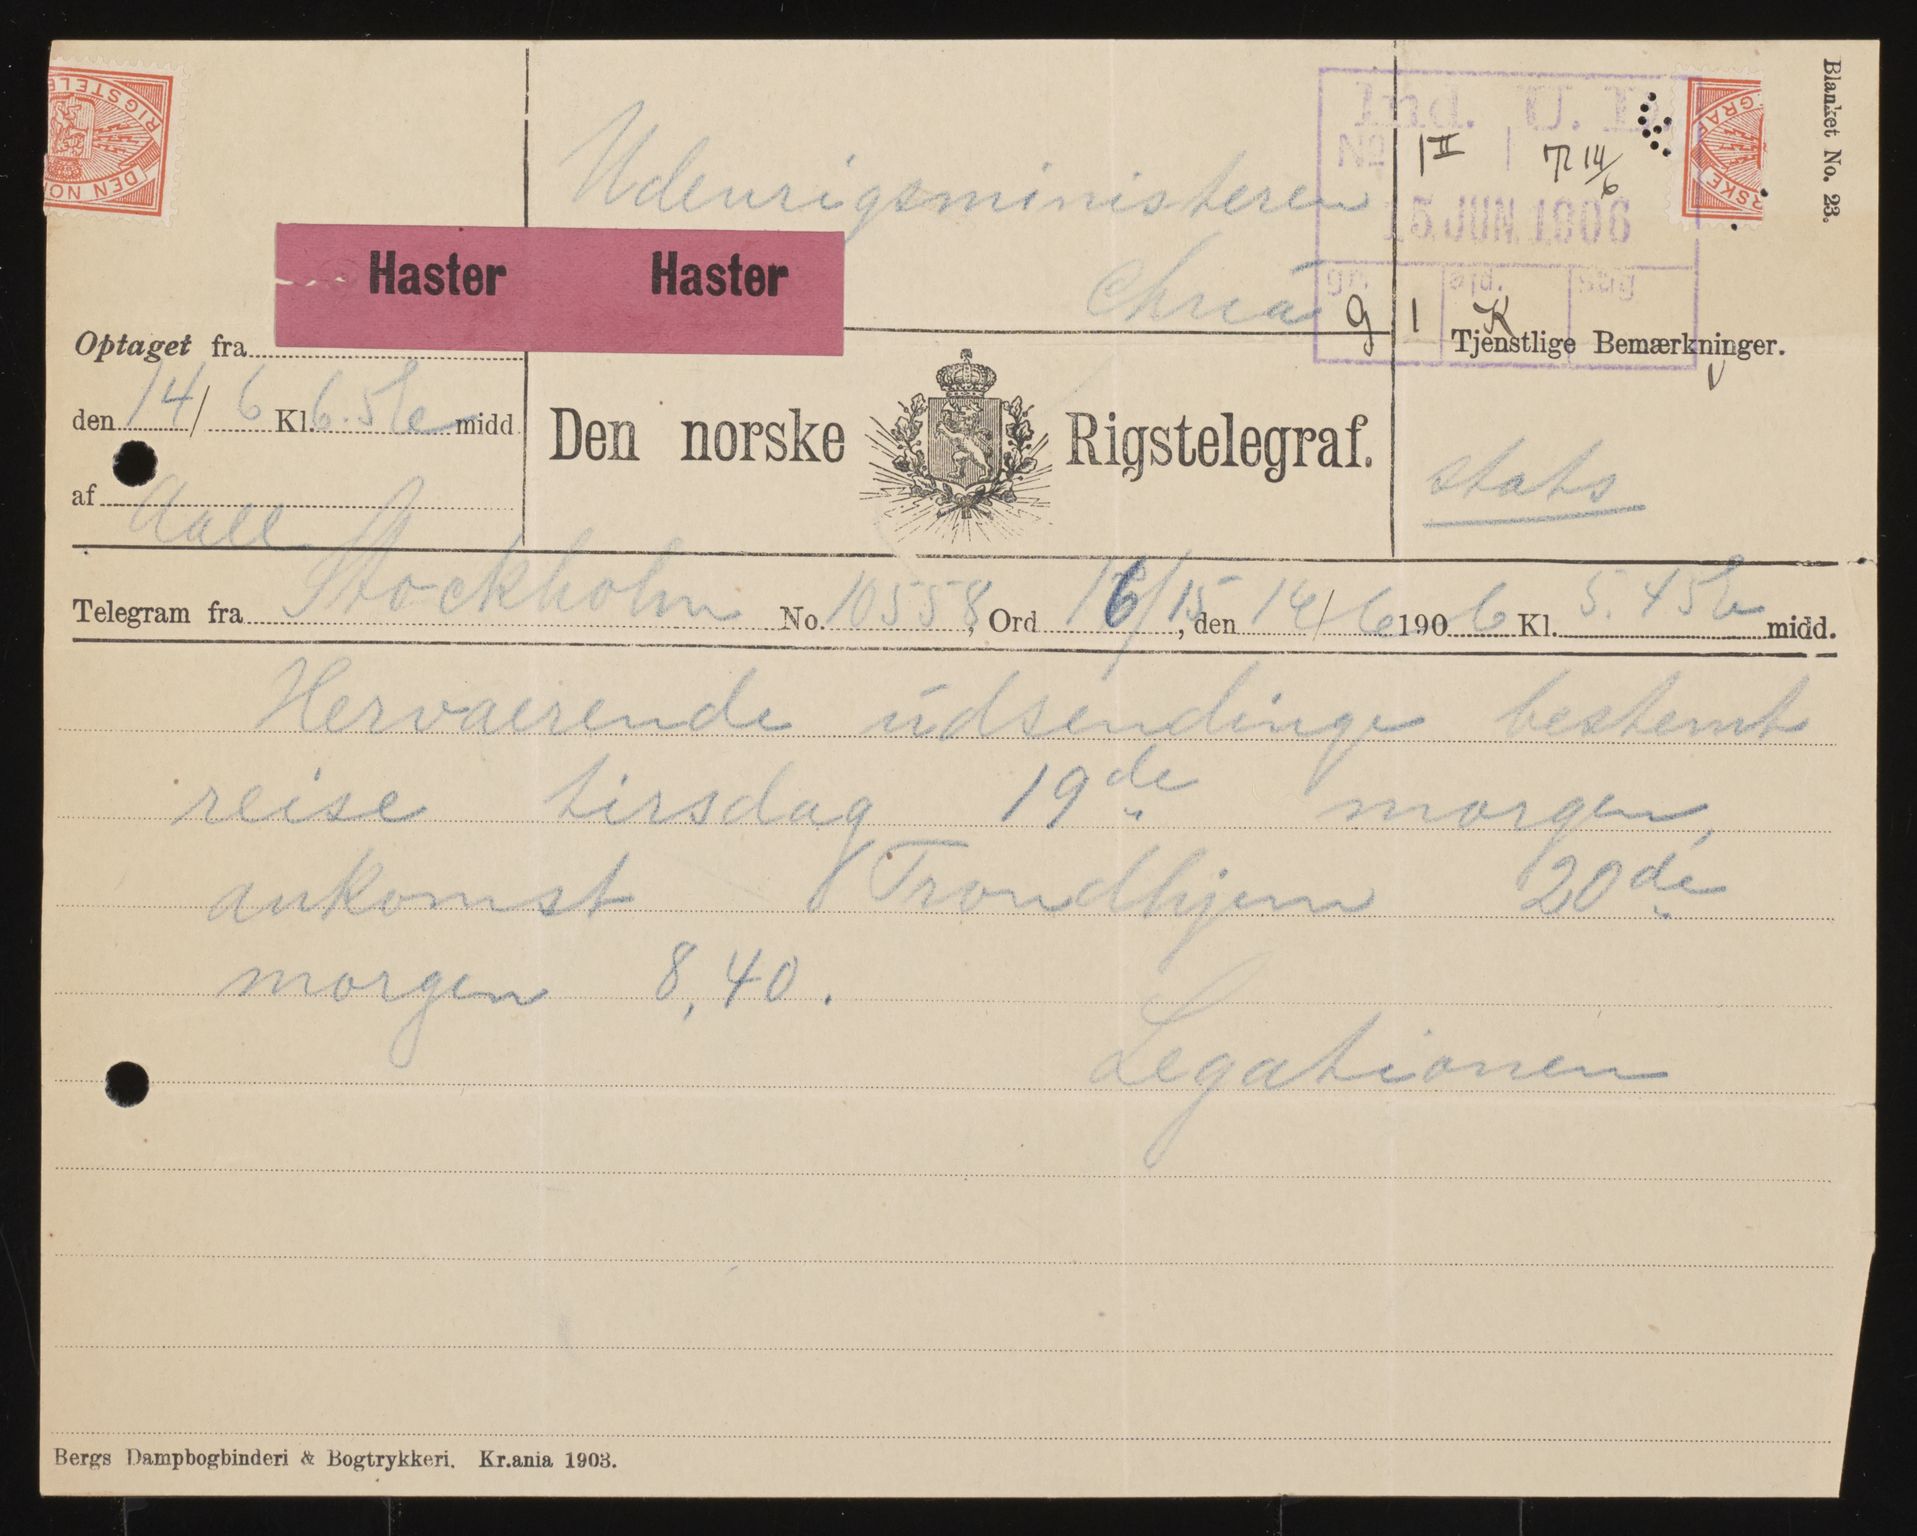 Blanket No. 23.
RIGSTELE
DEN NOR
GRAF
RSKE
Ind. U. D.
No 1 II
R 14/6
15 JUN. 1906
gr. afd. sag
g 1 K
Udenrigsministeren
Chria
Haster Haster
Optaget fra
den 14/6 Kl. 6.5 e midd.
af Aall
Den norske Rigstelegraf.
Tjenstlige Bemærkninger.
stats
Telegram fra Stockholm No. 10558, Ord 16/15, den 14/6 1906 Kl. 5.45 e midd.
Hervaerende udsending bestemt
reise tirsdag 19de morgen,
ankomst Trondhjem 20de
morgen 8,40.
Legationen
Bergs Dampbogbinderi & Bogtrykkeri. Kr.ania 1903.